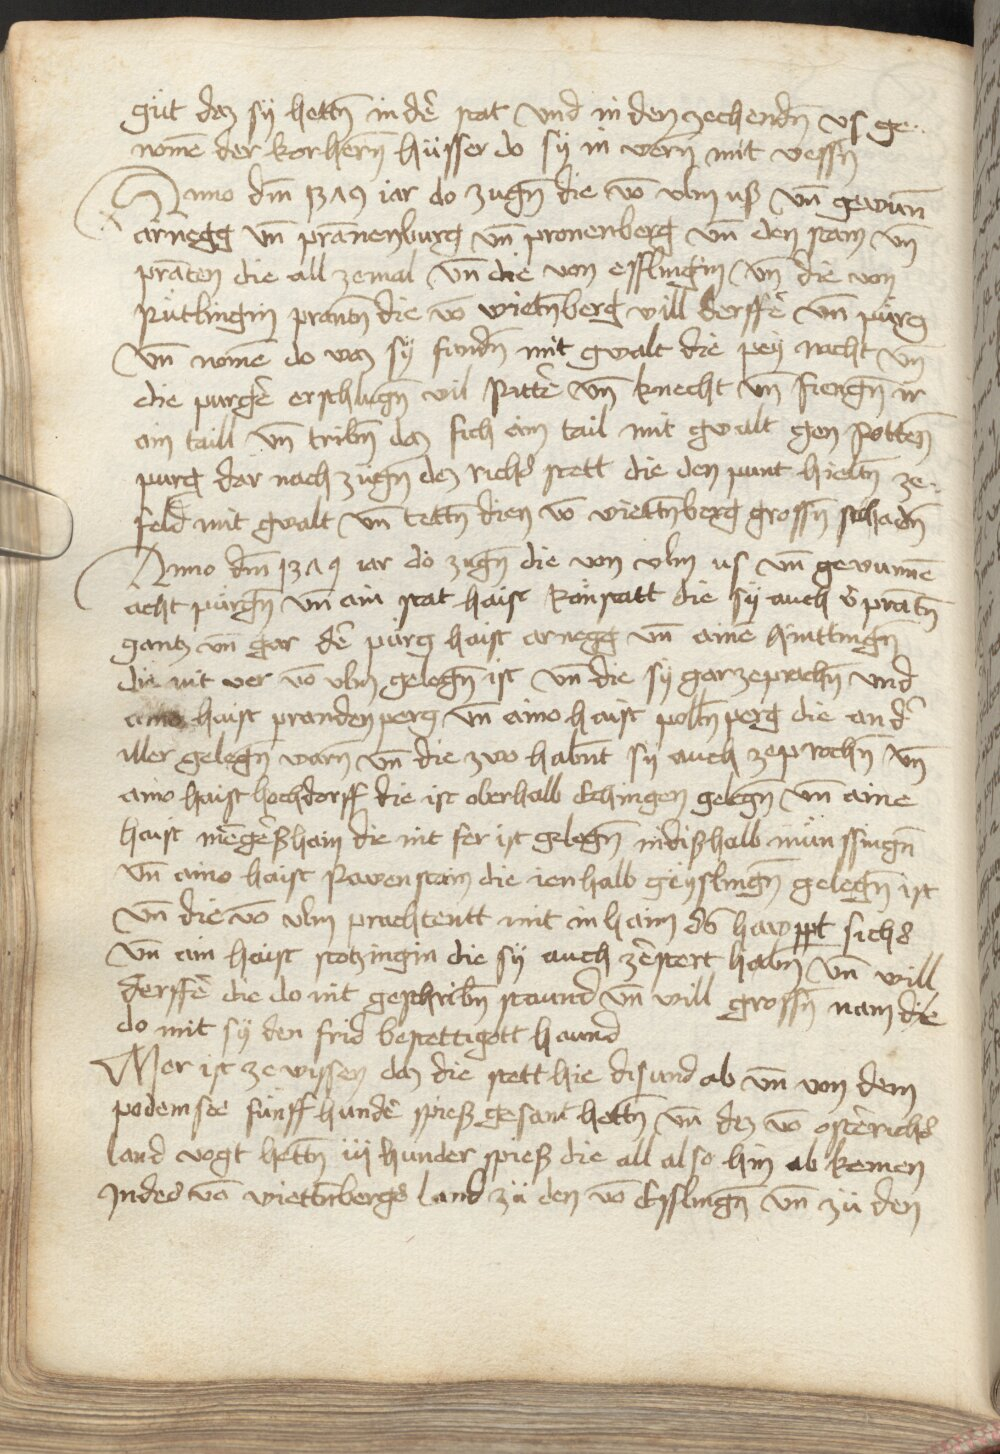 gůt daz sÿ hettn̄ in dē stat vnd in den zechendn̄ vs ge-
nomē der korhern̄ hüsser do sÿ in vern̄ mit vessn̄
Anno dm̄ 1379 iar do zugn̄ die vō vlm uß vn̄ gewun̄
arnegg vn̄ pranenburg vn̄ pronenberg vn̄ den stain vn̄
pranten die all zemal vn̄ die von essslingin vn̄ die von
Rütlingin prantn̄ die vō wietn̄berg vill derffē vn̄ pürg
vn̄ nomē do waz sÿ fundn̄ mit gwalt die peÿ nacht vn̄
die purgē erschlugn̄ vil Rittē vn̄ knecht vn̄ fiengn̄ ir
ain taill vn̄ tribn̄ daz fich ain tail mit gwalt gen Rotten
purg dar nach zugn̄ dez richs stett die den punt hieltn̄ ze-
feld mit gwalt vn̄ tettn̄ dien vō wiettn̄berg grossn̄ schadn̄
Anno dm̄ 1379 iar do zugn̄ die von vlm us vn̄ gewunnē
acht pürgn̄ vn̄ ain stat haist kanstatt die sÿ auch v̄prantn̄
gantz vn̄ gar dē pürg haist arnegg vn̄ ainē hiuttingn̄
die nit ver vō vlm gelegn̄ ist vn̄ die sÿ gar zeprachn̄ vnd
aino haist prandenperg vn̄ aino haist poltn̄perg die an dē
iller gelegn̄ warn̄ vn̄ die zwo habn̄t sÿ auch zeprochn̄ vn̄
aino haist hochdorff die ist oberhalb Echingen gelegn̄ vn̄ aine
haist mēgēßhain die nit fer ist gelegn̄ indißhalb münssingn̄
vn̄ aino haist Ravenstain die ienhalb geÿslingn̄ gelegn̄ ist
vn̄ die vō vlm prachtentt mit in haim des hawppt sichs
vn̄ ain haist stotzingin die sÿ auch zēstert habn̄ vn̄ will
derffē die do nit geschribn̄ staund vn̄ will grossn̄ nam die
do mit sÿ den frid bestettigott haund
Mer ist ze wissen daz die stett hie disund ab vn̄ von dem
podemsee fünff hundē spieß gesant hettn̄ vn̄ dez vō ostērichs
land vogt hettn̄ iij hunder spieß die all also hin ab kemen
In des vō wiettn̄bergs land zü den vō Esslingn̄ vn̄ zü den